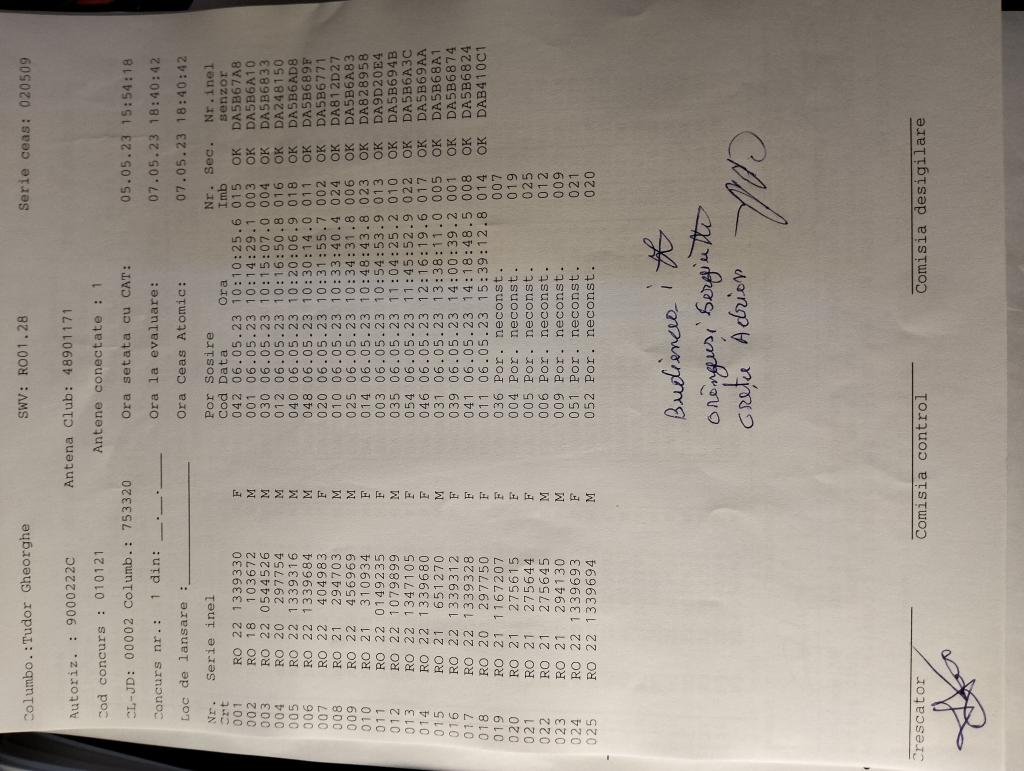 Columbo.:Tudor Gheorghe SWV: RO01.28 Serie ceas: 020509
Autoriz. : 9000222C Antena Club: 48901171
Cod concurs : 010121 Antene conectate : 1
CL-JD: 00002 Columb.: 753320 Ora setata cu CAT: 05.05.23 15:54:18
Concurs nr.: 1 din: __.__.____ Ora la evaluare: 07.05.23 18:40:42
Loc de lansare :____________ Ora Ceas Atomic: 07.05.23 18:40:42
Nr. Serie inel Por Sosire Nr. Sec. Nr.inel
Crt Cod Data Ora Imb senzor
001 RO 22 1339330 F 042 06.05.23 10:10:25.6 015 OK DA5B67A8
002 RO 18 103672 M 001 06.05.23 10:14:29.1 003 OK DA5B6A10
003 RO 22 0544526 M 030 06.05.23 10:15:07.0 004 OK DA5B6833
004 RO 20 297754 M 012 06.05.23 10:16:50.8 016 OK DA248150
005 RO 22 1339316 M 040 06.05.23 10:20:06.9 018 OK DA5B6AD8
006 RO 22 1339684 M 048 06.05.23 10:30:14.0 011 OK DA5B689F
007 RO 22 404983 F 020 06.05.23 10:31:55.7 002 OK DA5B6771
008 RO 21 294703 M 010 06.05.23 10:33:40.4 024 OK DA812D27
009 RO 22 456969 M 025 06.05.23 10:34:31.8 006 OK DA5B6A83
010 RO 21 310934 F 014 06.05.23 10:48:43.8 023 OK DA828958
011 RO 22 0149235 F 003 06.05.23 10:54:53.9 013 OK DA9D20E4
012 RO 22 1079899 M 035 06.05.23 11:04:25.2 010 OK DA5B694B
013 RO 22 1347105 F 054 06.05.23 11:45:52.9 022 OK DA5B6A3C
014 RO 22 1339680 F 046 06.05.23 12:16:19.6 017 OK DA5B69AA
015 RO 21 651270 M 031 06.05.23 13:38:11.0 005 OK DA5B68A1
016 RO 22 1339312 F 039 06.05.23 14:00:39.2 001 OK DA5B6874
017 RO 22 1339328 F 041 06.05.23 14:18:48.5 008 OK DA5B6824
018 RO 20 297750 F 011 06.05.23 15:39:12.8 014 OK DAB410C1
019 RO 21 1167207 F 036 Por. neconst. 007
020 RO 21 275615 F 004 Por. neconst. 019
021 RO 21 275644 F 005 Por. neconst. 025
022 RO 21 275645 M 006 Por. neconst. 012
023 RO 21 294130 M 009 Por. neconst. 009
024 RO 22 1339693 F 051 Por. neconst. 021
025 RO 22 1339694 M 052 Por. neconst. 020
Adrian
Crescator Comisia control Comisia desigilare